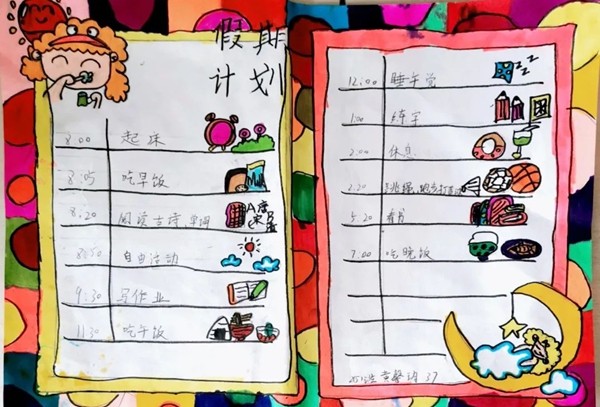 假期
计划
8:00 起床
8:05 吃早饭
8:20 阅读古诗 单词
8:50 自由活动
9:30 写作业
11:30 吃午饭
12:00 睡午觉
ZZZ
1:00 练字
2:00 休息
2:20
5:20 看书
7:00 吃晚饭
37